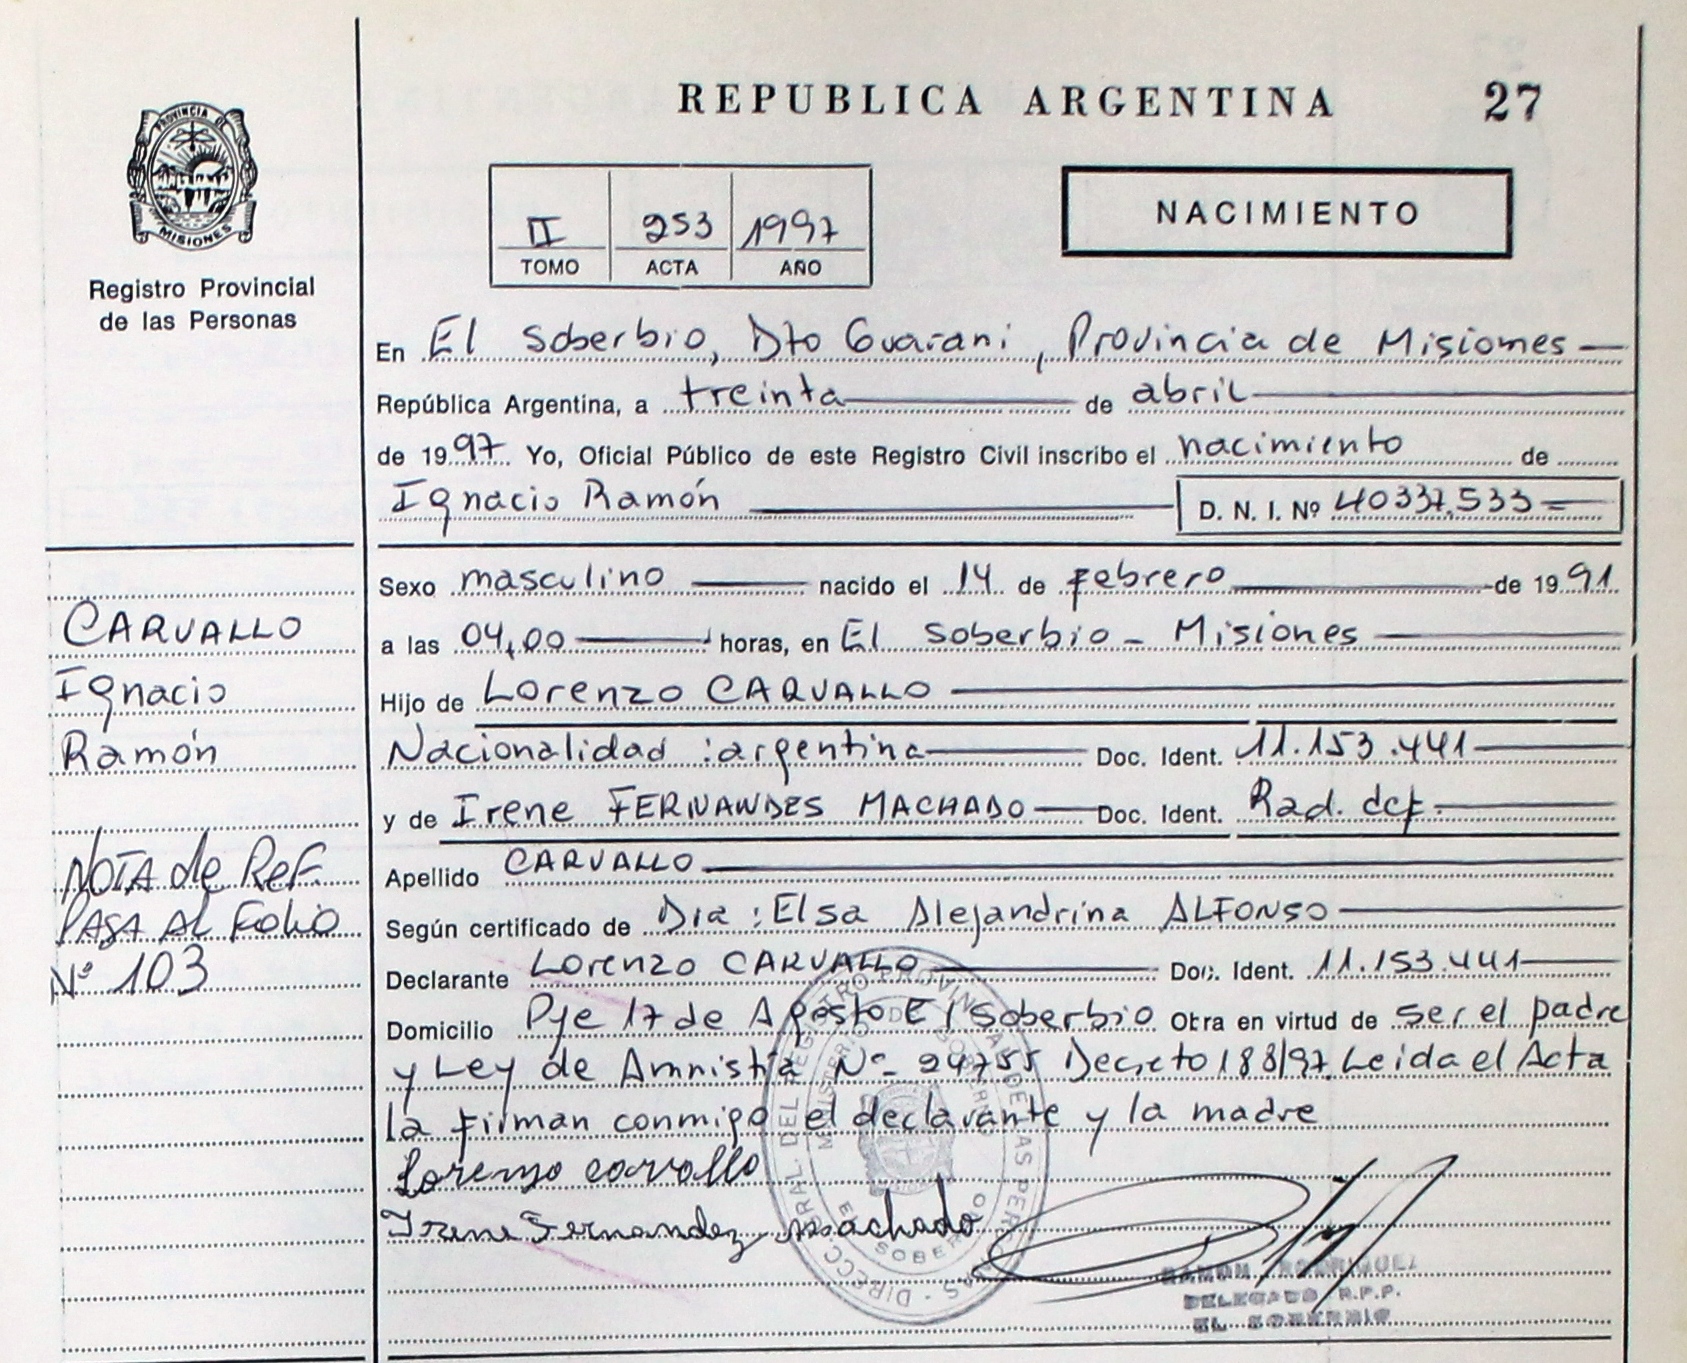 REPUBLICA ARGENTINA 27
PROVINCIA DE
MISIONES
Registro Provincial
de las Personas
NACIMIENTO
II 253 1997
TOMO ACTA AÑO
En El Soberbio, Dto Guarani, Provincia de Misiones
República Argentina, a treinta de abril
de 1997. Yo, Oficial Público de este Registro Civil inscribo el nacimiento de
Ignacio Ramón D. N. I. Nº 40337.533
Sexo masculino nacido el 14 de Febrero de 1991
a las 04,00 horas, en El Soberbio - Misiones
Hijo de Lorenzo CARVALLO
Nacionalidad : argentina Doc. Ident. 11.153.441
y de Irene FERNANDES MACHADO Doc. Ident. Rad. def.
Apellido CARVALLO
Según certificado de Dra : Elsa Alejandrina ALFONSO
Declarante Lorenzo CARVALLO Doc. Ident. 11.153.441
Domicilio Pje 17 de Agosto El Soberbio Obra en virtud de ser el padre
y Ley de Amnistía Nº- 24755 Decreto 188/97. Leida el Acta
la firman conmigo el declarante y la madre
Lorenzo carvallo
Irene Fernandez machado
CARVALLO
Ignacio
Ramón
NOTA de Ref.
PASA AL Folio
Nº 103
DIRECC. GRAL. DEL REGISTRO PROVINCIAL DE LAS PERSONAS -
MINISTERIO DE GOBIERNO
EL SOBERBIO
RAMON RODRIGUEZ
DELEGADO R.P.P.
EL SOBERBIO